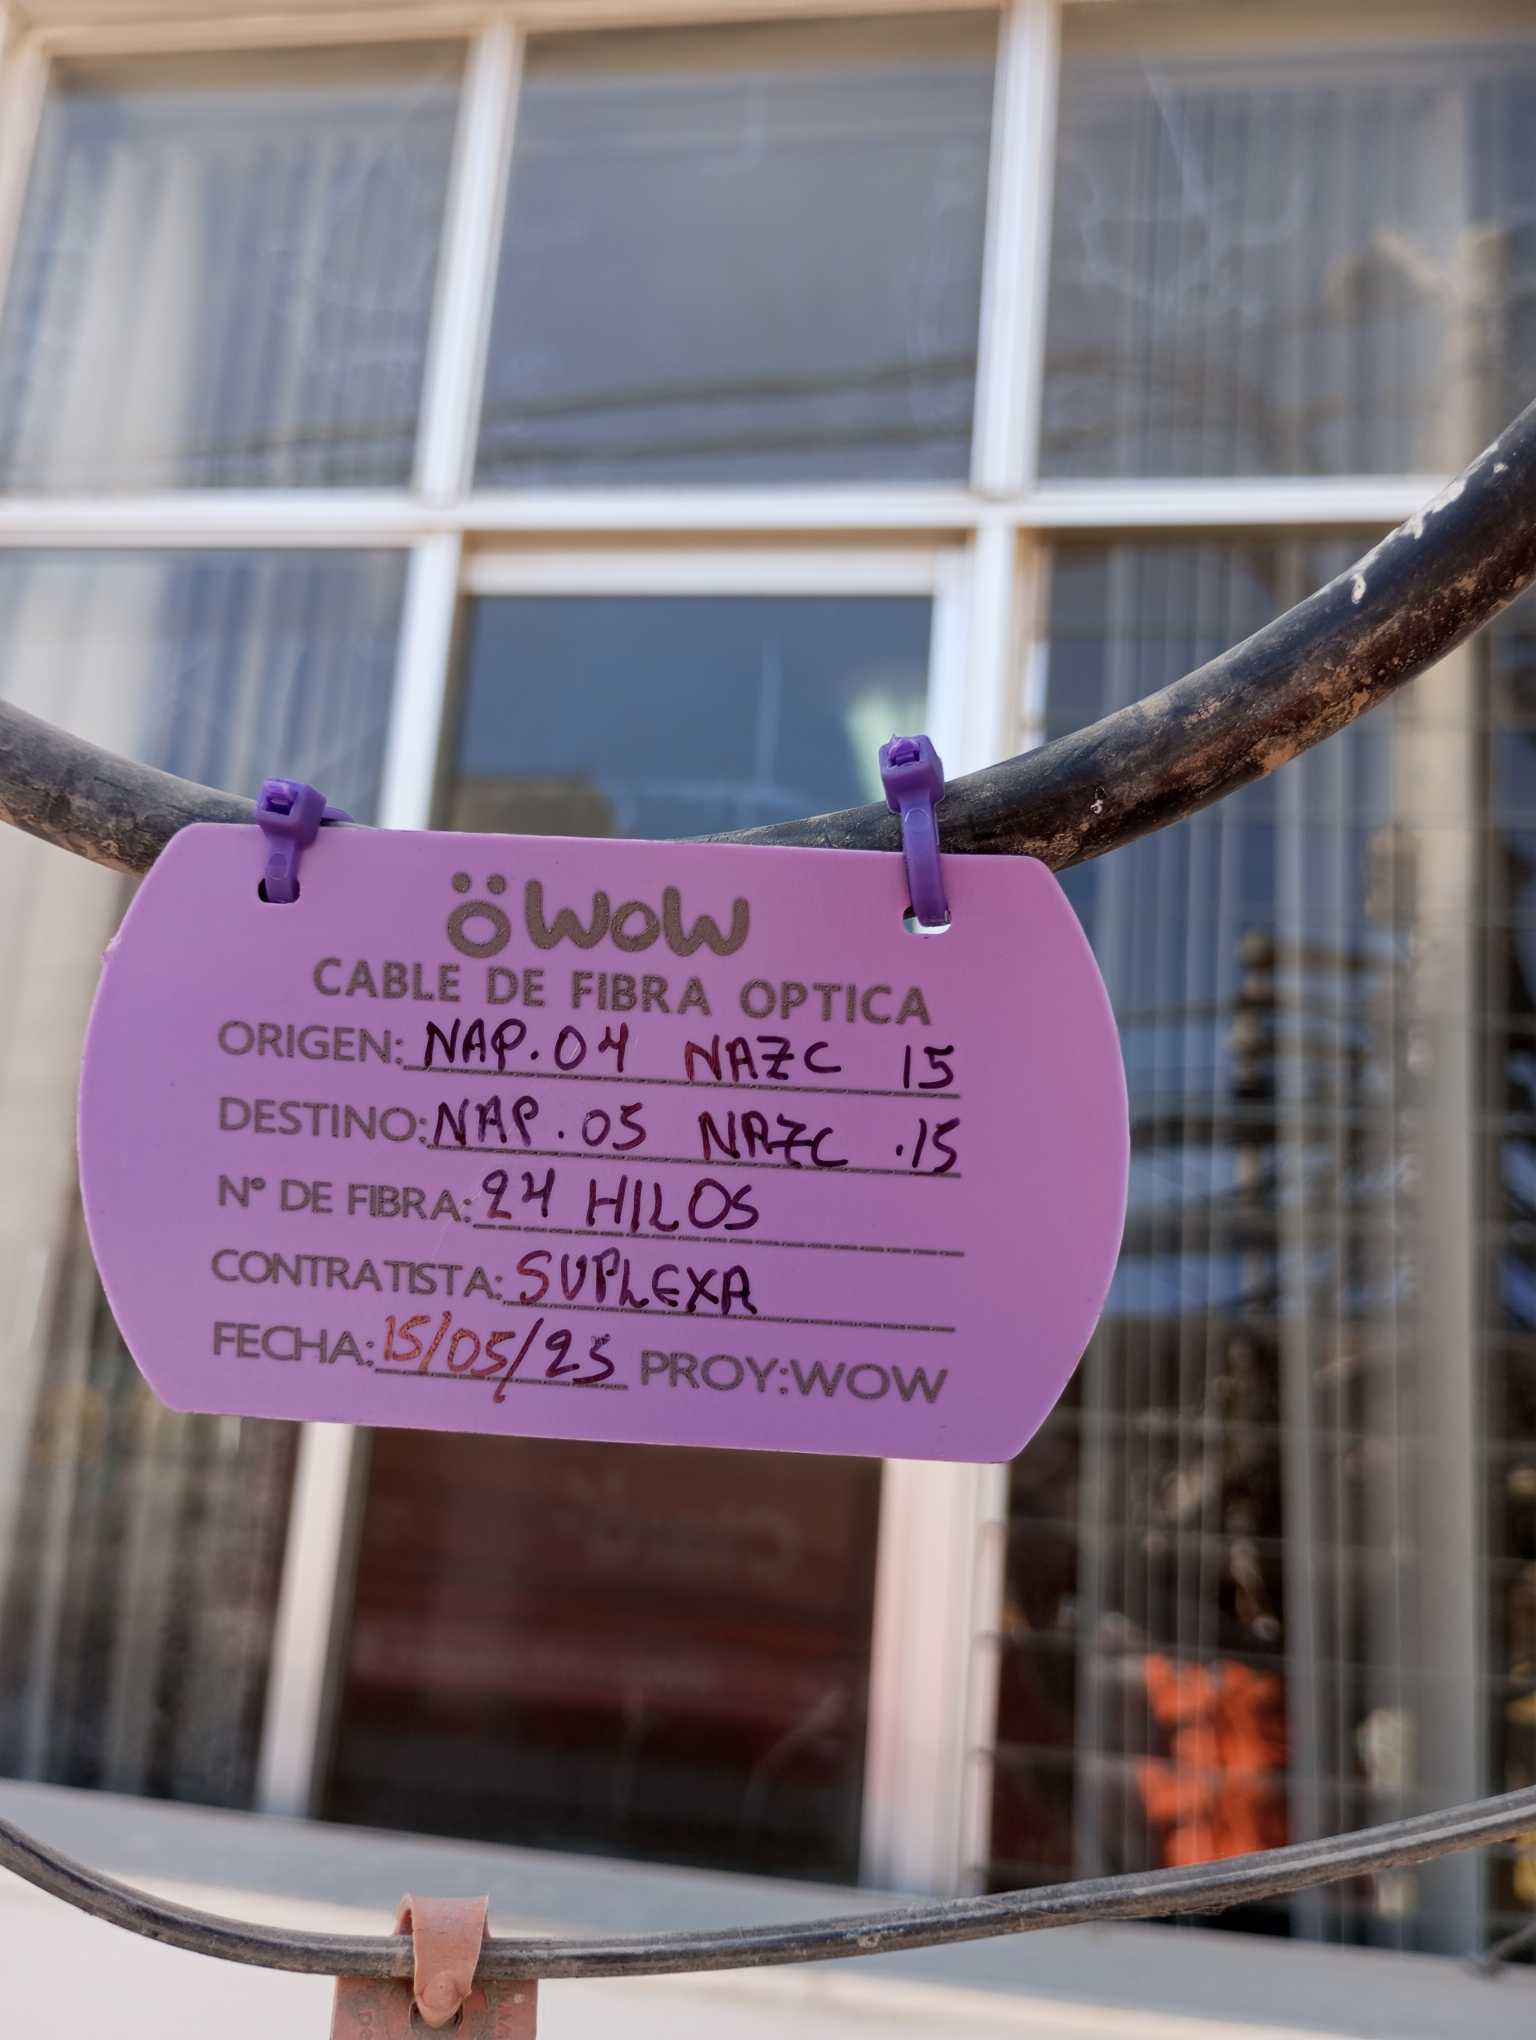 wow
CABLE DE FIBRA OPTICA
ORIGEN: NAP.04 NAZC 15
DESTINO: NAP.05 NAZC .15
N° DE FIBRA: 24 HILOS
CONTRATISTA: SUPLEXA
FECHA: 15/05/23 PROY:WOW